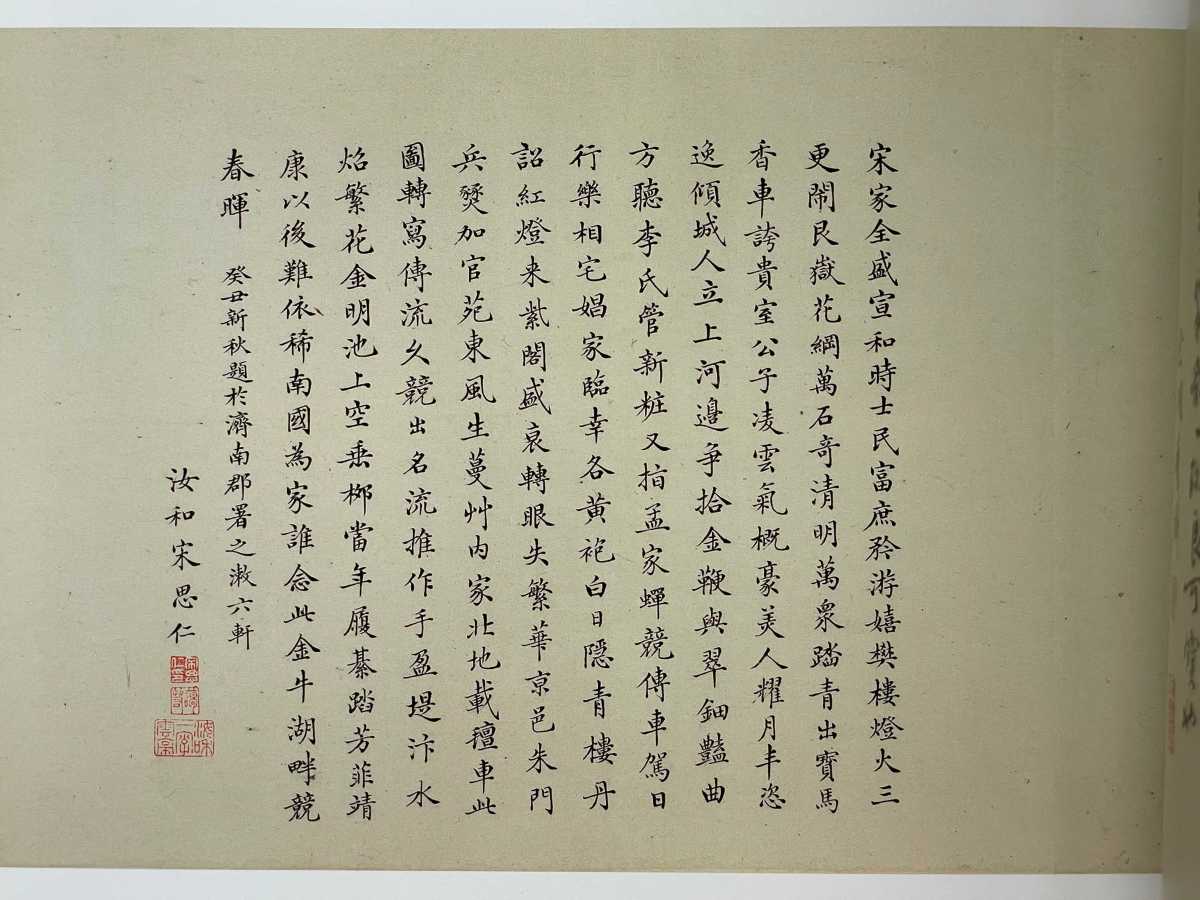 宋家全盛宣和時士民富庶矜游嬉樊樓燈火三
更閙艮嶽花綱萬石奇清明萬衆踏青出寶馬
香車誇貴室公子凌雲氣概豪美人耀月丰恣
逸傾城人立上河邊爭拾金鞭與翠鈿豔曲
方聽李氏管新粧又指孟家蟬競傳車駕日
行樂相宅娼家臨幸各黃袍白日隱青樓丹
詔紅燈来紫閣盛衰轉眼失繁華京邑朱門
兵燹加官苑東風生蔓艸内家北地載氊車此
圖轉寫傳流久競出名流推作手盈堤汴水
焰繁花金明池上空垂柳當年履綦踏芳菲靖
康以後難依稀南國為家誰念此金牛湖畔競
春暉 癸丑新秋題於濟南郡署之漱六軒
汝和宋思仁